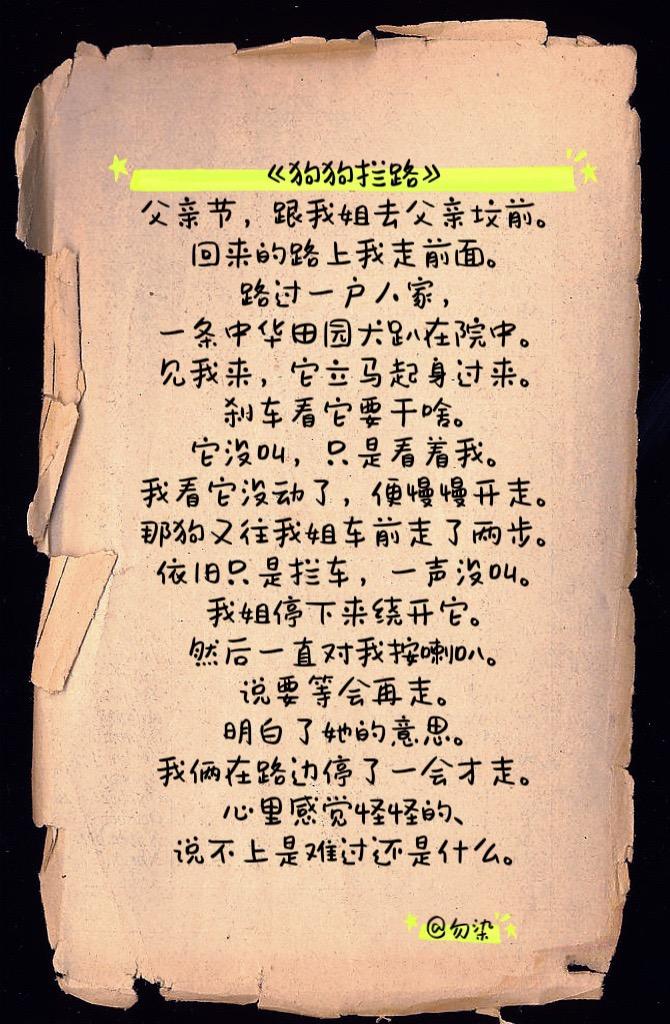 《狗狗拦路》
父亲节，跟我姐去父亲坟前。
回来的路上我走前面。
路过一户人家，
一条中华田园犬趴在院中。
见我来，它立马起身过来。
刹车看它要干啥。
它没叫，只是看着我。
我看它没动了，便慢慢开走。
那狗又往我姐车前走了两步。
依旧只是拦车，一声没叫。
我姐停下来绕开它。
然后一直对我按喇叭。
说要等会再走。
明白了她的意思。
我俩在路边停了一会才走。
心里感觉怪怪的、
说不上是难过还是什么。
@勿染